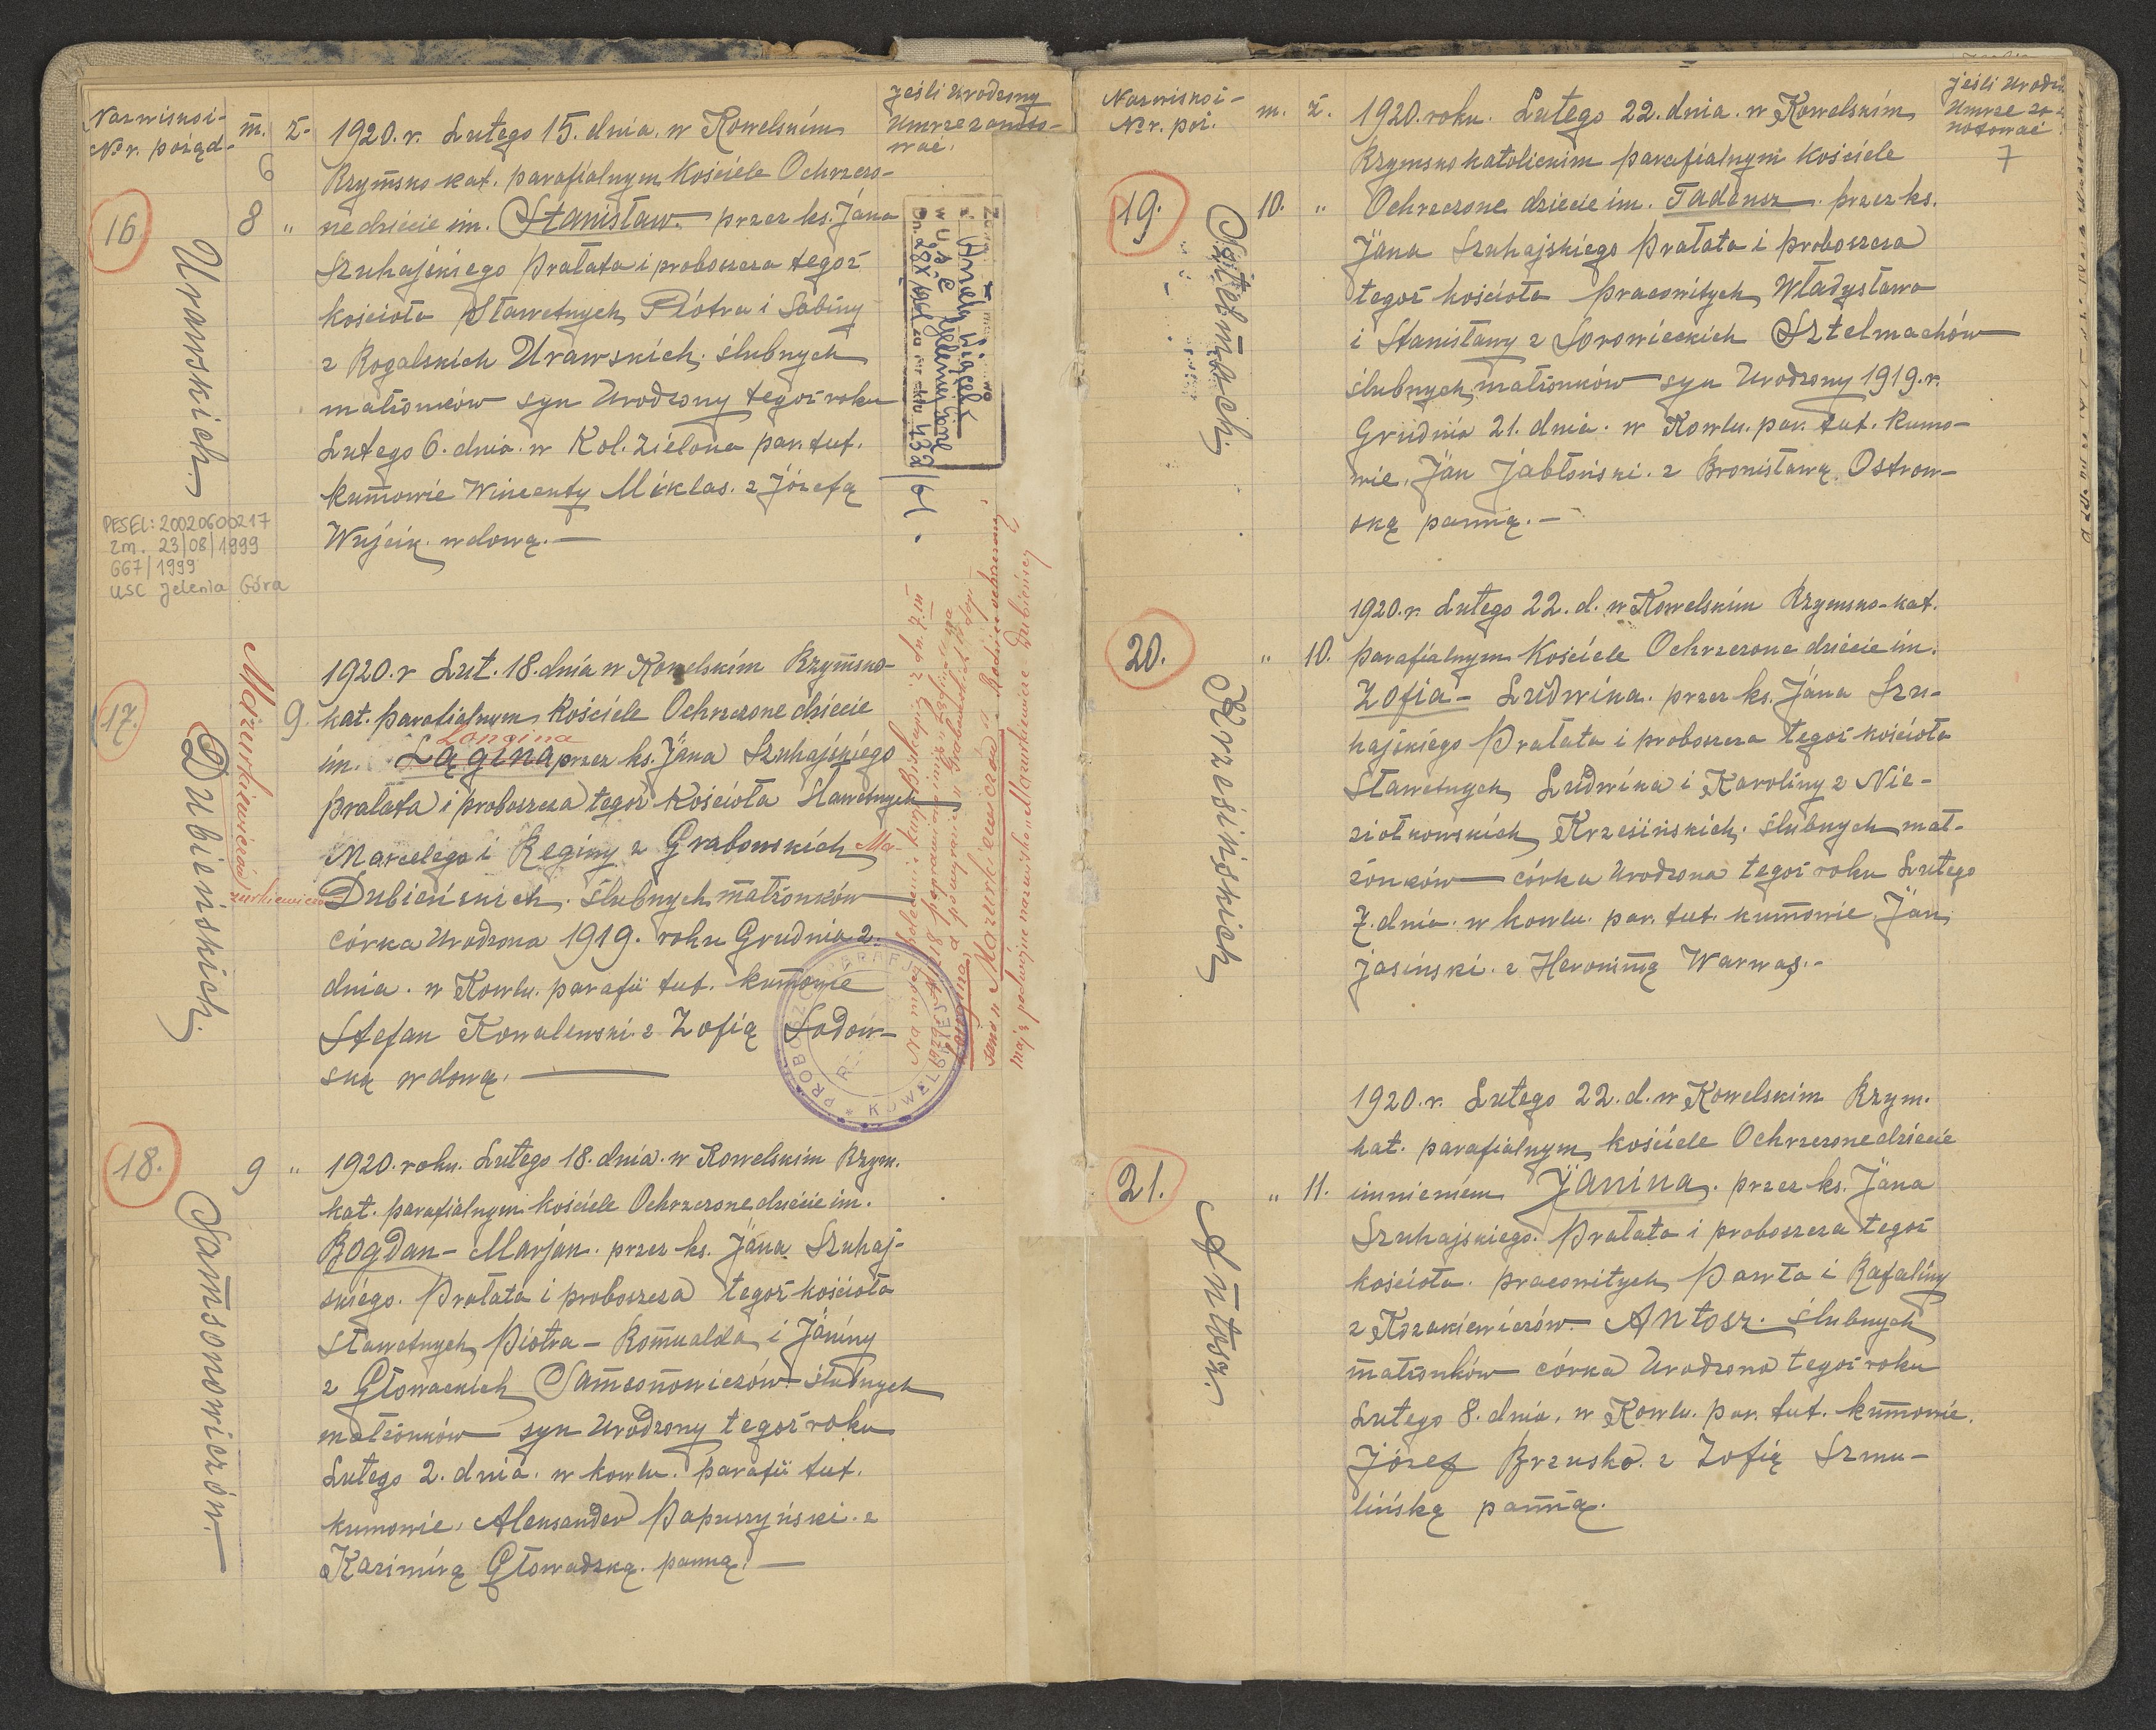 Nazwisko i
Nr. porząd.
m. ż.
6
Jeśli urodzony
Umrze zanoto-
wać.
16.
8 "
Urawskich
1920. r. Lutego 15. dnia. w Kowelskim
Rzymsko kat. parafialnym Kościele Ochrzczo-
ne dziecie im. Stanisław. przez ks. Jána
Szuhajskiego Prałata i proboszcza tegoż
kościoła Sławetnych Piótra i Sabiny
z Rogalskich Urawskich. ślubnych
małżonków syn Urodzony tegoż roku
Lutego 6. dnia. w Kol. Zielona par. tut.
kumowie Wincenty Miklas. z Józefą
Wujcik. wdową. —
PESEL: 20020600217
zm. 23/08/1999
667/1999
USC Jelenia Góra
Anelą
w USC
17.
9.
Mazurkiewiczów
Dubieńskich.
1920. r Lut. 18. dnia w Kowelskim Rzymsko-
kat. parafialnym Kościele Ochrzczone dziécie
Longina
im. Łągina przez ks. Jána Szuhajskiego
prałata i proboszcza tegoż Kościoła Sławetnych
Marcelego i Reginy z Grabowskich Ma-
zurkiewiczów Dubieńskich. ślubnych małżonków
córka Urodzona 1919. roku Grudnia 2.
dnia. w Kowlu. parafii tut. kumowie
Stefan Kowalewski z Zofią Sadow-
ską wdową. —
Mazurkiewiczów
mają podwójne nazwisko: Mazurkiewicze Dubieńscy
KOWEL
18.
9 "
Samsonowiczów.
1920. roku. Lutego 18. dnia. w Kowelskim Rzym.
kat. parafialnym kościele Ochrzczone dziécie im.
Bogdan - Marján. przez ks. Jána Szuhaj-
skiego. Prałata i proboszcza tegoż kościoła
Sławetnych Piotra - Romualda i Jániny
z Głowackich Samsonowiczów ślubnych
małżonków syn Urodzony tegoż roku
Lutego 2. dnia. w kowlu. parafii tut.
kumowie, Aleksander Papuszyński. z
Kazimirą Głowadzką. panną. —
Nazwisko i
Nr. poż.
m. ż.
Jeśli Urodz.
Umrze za-
notować
7
19.
10. "
Sztelmach.
1920. roku. Lutego 22. dnia. w Kowelskim
Rzymsko katolickim parafialnym Kościele
Ochrzczone dziecie im. Tadeusz. przez ks.
Jána Szuhajskiego Prałata i proboszcza
tegoż kościoła Pracowitych Władysława
i Stanisławy z Sorowieckich Sztelmachów
ślubnych małżonków syn Urodzony 1919. r.
Grudnia 21. dnia. w Kowlu. par. tut. kumo-
wie. Ján Jabłoński. z Bronisławą Ostrow-
ską panną. —
20.
" 10.
Krzesińskich
1920. r. Lutego 22. d. w Kowelskim Rzymsko-kat.
parafialnym Kościele Ochrzczone dziécie im.
Zofia - Ludwika. przez ks. Jána Szu-
hajskiego Prałata i proboszcza tegoż kościoła
Sławetnych Ludwika i Karoliny z Nie-
ziołkowskich Krzesińskich. ślubnych mał-
żonków córka Urodzona tegoż roku Lutego
7. dnia. w kowlu. par. tut. kumowie Ján
Jasiński. z Heronimą Warwas. -
21.
" 11.
Antosz.
1920. r. Lutego 22. d. w Kowelskim Rzym.
kat. parafialnym kościele Ochrzczone dziécie
imnieniem Jánina. przez ks. Jána
Szuhajskiego. Prałata i proboszcza tegoż
kościoła. pracowitych Pawła i Rafaliny
z Kozakiewiczów. Antosz. ślubnych
małżonków córka Urodzona tegoż roku
Lutego 8. dnia. w Kowlu. par. tut. kumowie.
Józef Brzusko. z Zofią Szmu-
lińską panną.